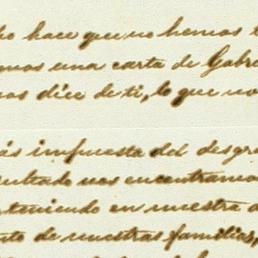 ho hace que no hemos t
mos una carta de Gabri
nos dice de ti, lo que no
ás impuesta del desgra
sultado nos encontramo
teniendo en nuestra d
nto de nuestras familias,